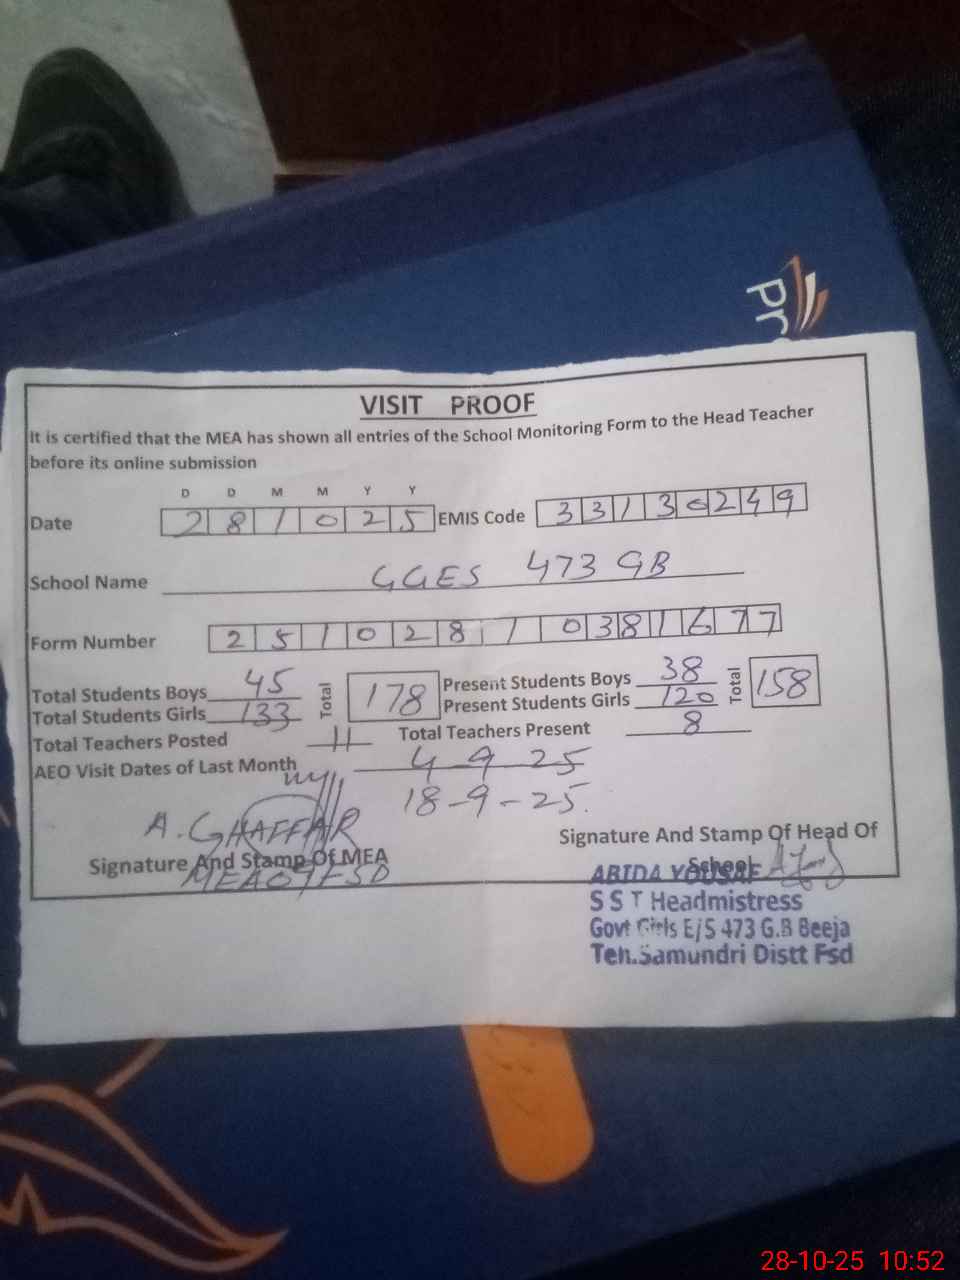 pr
VISIT PROOF
It is certified that the MEA has shown all entries of the School Monitoring Form to the Head Teacher
before its online submission
D D M M Y Y
Date 2 8 1 0 2 5 EMIS Code 3 3 1 3 0 2 4 9
School Name GGES 473 GB
Form Number 2 5 1 0 2 8 1 0 3 8 1 6 7 7
Total Students Boys 45 Total 178 Present Students Boys 38 Total 158
Total Students Girls 133 Present Students Girls 120
Total Teachers Posted 11 Total Teachers Present 8
AEO Visit Dates of Last Month 4 9 25
18-9-25.
A. GHAFFAR
Signature And Stamp Of MEA
Signature And Stamp Of Head Of
School
ABIDA YOUSAF
S S T Headmistress
Govt Girls E/S 473 G.B Beeja
Teh.Samundri Distt Fsd
28-10-25 10:52